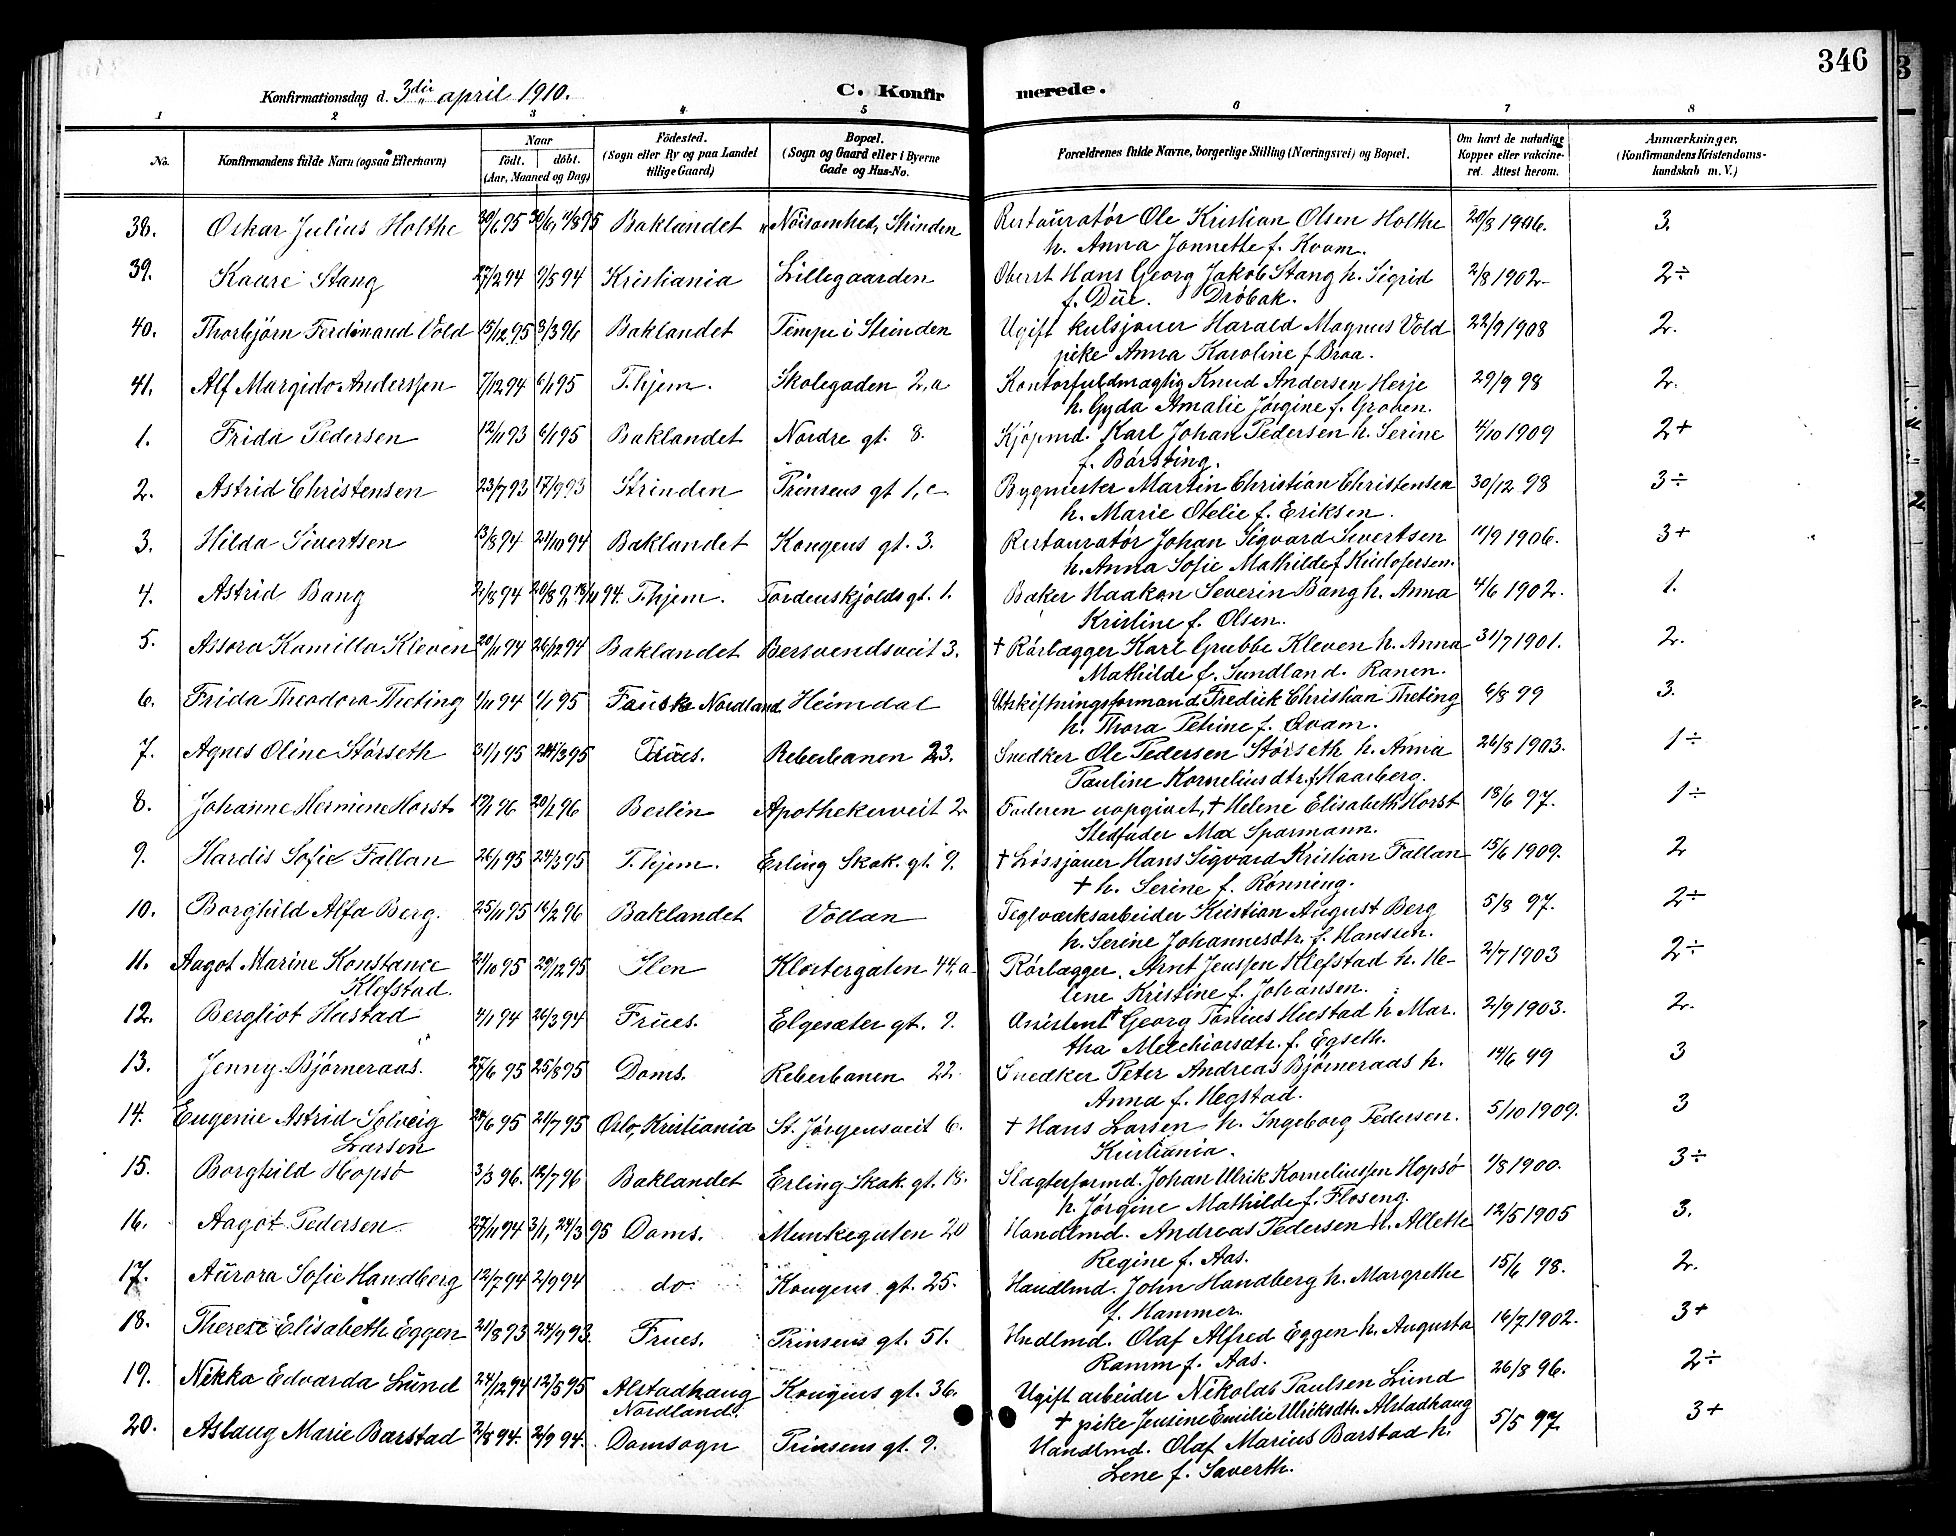 346
Konfirmationsdag d. 3die april 1910.
C. Konfirmerede.
1 2 3 4 5 6 7 8
No. Konfirmandens fulde Navn (ogsaa Efternavn) Naar født. døbt. (Aar, Maaned og Dag) Fødested. (Sogn eller By og paa Landet tillige Gaard) Bopæl. (Sogn og Gaard eller i Byerne Gade og Hus-No. Forældrenes fulde Navne, borgerlige Stilling (Næringsvei) og Bopæl. Om havt de naturlige Kopper eller vakcineret. Attest herom. Anmærkninger. (Konfirmandens Kristendomskundskab m. V.)
38. Oskar Julius Holthe 30/6 95 30/6, 11/8 95 Baklandet Nöisomhed, Strinden Restauratør Ole Kristian Olsen Holthe 20/8 1906. 3.
h. Anna Jonnette f. Kvam.
39. Kaare Stang 27/2 94 9/5 94 Kristiania Lillegaarden Oberst Hans Georg Jakob Stang h. Sigrid 2/8 1902 2÷
f. Düe. Dröbak.
40. Thorbjörn Ferdinand Vold 15/12 95 8/3 96 Baklandet Tempe i Strinden Ugift kulsjauer Harald Magnus Vold 22/9 1908 2.
pike Anna Karoline f. Braa.
41. Alf Margido Anderssen 7/12 94 6/1 95 T.hjem. Skolegaden 2,a Kontorfuldmægtig Knud Andersen Herje 29/9 98 2.
h. Gyda Amalie Jørgine f. Groven.
1. Frida Pedersen 12/11 93 6/1 95 Baklandet Nordre gt. 8. Kjöpmd. Karl Johan Pedersen h. Serine 4/10 1909 2+
f. Børsting.
2. Astrid Christensen 23/7 93 17/9 93 Strinden Prinsens gt 1,c Bygmester Martin Christian Christensen 30/12 98 3÷
h. Marie Otelie f. Eriksen.
3. Hilda Sivertsen 13/8 94 21/10 94 Baklandet Kongens gt. 3. Restauratør Johan Sigvard Sivertsen 11/9 1906. 3+
h. Anna Sofie Mathilde f Kristofersen.
4. Astrid Bang 2/8 94 20/8 94. T.hjem. Tordenskjolds gt. 1. Baker Haakon Severin Bang h. Anna 4/6 1902. 1.
Kristine f. Olsen.
5. Assora Kamilla Kleven 20/11 94 26/12 94 Baklandet Bersvendsveit 3. † Rørlægger Karl Grubbe Kleven h. Anna 31/7 1901. 2.
Mathilde f. Sundland. Ranen.
6. Frida Theodora Theting 1/11 94 1/1 95 Fauske Nordland Heimdal Utskiftningsformand Fredrik Christian Theting 6/8 99 3.
h. Thora Petrine f. Qvam.
7. Agnes Oline Störseth 31/1 95 24/3 95 Frues. Reberbanen 23. Snedker Ole Pedersen Störseth h. Anna 26/8 1903. 1÷
Pauline Korneliusdtr. f. Haarberg.
8. Johanne Hermine Horst 17/1 96 20/1 96 Berlin Apothekerveit 2 Faderen uopgivet, † Helene Elisabeth Horst 13/6 97. 1÷
Stedfader Max Sparmann.
9. Hardis Sofie Fallan 26/1 95 24/3 95 T.hjem. Erling Skak. gt. 9. † Løssjauer Hans Sigvard Kristian Fallan 15/6 1909. 2
† h. Serine f. Rønning.
10. Borghild Alfa Berg. 25/11 95 16/2 96 Baklandet Vollan Teglværksarbeider Kristian August Berg 5/8 97. 2÷
h. Serine Johannesdtr. f. Hanssen.
11. Aagot Marine Konstance 21/10 95 29/12 95 Ilen Klostergaten 44,a Rørlægger. Arnt Jenssen Klefstad h. He- 2/7 1903 2÷
Klefstad. lene Kristine f. Johansen.
12. Bergliot Hustad 4/1 94 26/3 94 Frues. Elgesæter gt. 9. Assistent Georg Tonius Hustad h. Mar. 2/9 1903. 2.
tha Melchiorsdtr. f. Egseth.
13. Jenny Bjørneraas. 27/6 95 25/8 95 Doms. Reberbanen 22. Snedker Peter Andreas Bjørneraas h. 14/6 99 3
Anna f. Hegstad.
14. Eugenie Astrid Solveig 24/6 95 21/7 95 Oslo, Kristiania St. Jørgensveit 6. † Hans Larsen h. Ingeborg Pedersen. 5/10 1909. 3
Larsen Kristiania.
15. Borghild Hopsö 3/3 96. 12/7 96 Baklandet Erling Skak. gt. 18. Slagterformd. Johan Ulrik Korneliussen Hopsö 1/8 1900. 3÷
h. Jørgine Mathilde f. Floseng.
16. Aagot Pedersen 27/11 94 3/1, 24/3 95 Doms. Munkegaten 20 Handlmd. Andreas Pedersen h. Allette 12/5 1905 3.
Regine f. Aas.
17. Aurora Sofie Handberg 12/7 94 2/9 94 do. Kongens gt. 25. Handlmd. John Handberg h. Margrethe 15/6 98. 2.
f. Hammer.
18. Therese Elisabeth Eggen 21/8 93 24/9 93. Frues. Prinsens gt. 51. Hndlmd. Olaf Alfred Eggen h. Augusta 16/7 1902. 3+
Ramm f. Aas.
19. Nikka Edvarda Lund 24/12 94 12/5 95 Alstadhaug Kongens gt. 36. Ugift arbeider Nikolai Paulsen Lund 26/8 96. 2÷
Nordland. † pike Jensine Emilie Ulriksdtr. Alstadhaug
20. Aslaug Marie Barstad 2/8 94. 2/9 94. Domsogn Prinsens gt. 9. Handlmd. Olaf Marius Barstad h. 5/5 97. 3+
Lene f. Saverth.